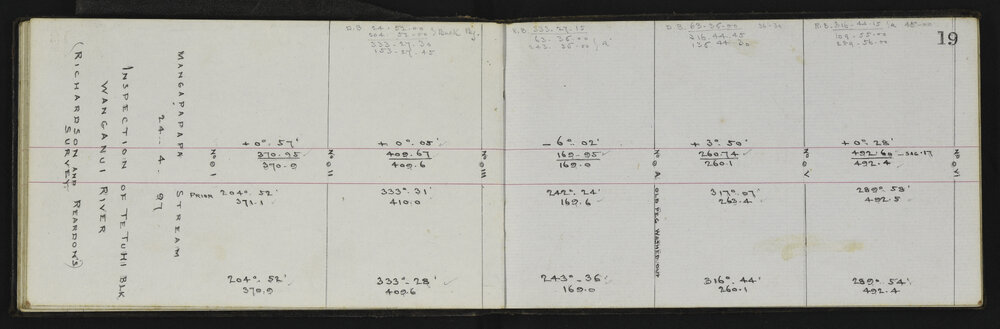 19
(RICHARDSON AND REARDON'S)
SURVEY.
WANGANUI RIVER
INSPECTION OF TE TUHI BLK
24 - 4. 97
MANGAPAPAPA STREAM
R.B. 24-52-00
204. 52-00
Back
333-27-30
153-27-45
R.B. 333-27-15
63-36-00
243. 36-00
R.B. 63-36-00 36-30
316-44-45
136 44-30
R.B. 316-44-15
109-55-00
289-56-00
No 0 I
+ 0°. 57'
370.95
370.9
PRIOR 204°. 52'
371.1
204°. 52'
370.9
No 0 II
+ 0°. 05'
409.67
409.6
333°. 31'
410.0
333°-28'
409.6
No 0 III
- 6°. 02'
169.95
169.0
242°. 24'
169.6
243°-36'
169.0
No 0 A OLD PEG WASHED OUT
+ 3°. 50'
260.74
260.1
317°. 07'
263.4
316°. 44'
260.1
No 0 V
+ 0°. 28'
492.60 - SEC. 17
492.4
289°. 58'
492.5
289°. 54'
492.4
No 0 VI